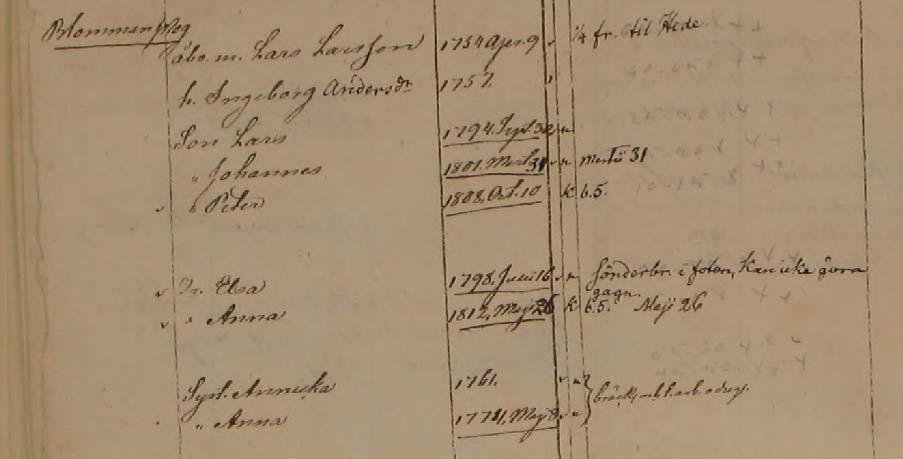 Blomman
åbo. m. Lars Larsson 1754 Apr. 9 v 1/4 fr. til Hede
h. Ingeborg Andersdr 1757. v
Son Lars 1794. Sept. 30 v n
" Johannes 1801. Mart. 31 v n Martii 31
v " Peter 1808. Oct. 10 k b.5.
v Dr. Elsa 1798. Junii 16 v n sönderbr. i foten, kan icke göra
gagn.
v " Anna 1812. Maji 26 k b.5. Maji 26
Syst. Annicka 1761. v n
" Anna 1771, Maji 8 v n bräck,